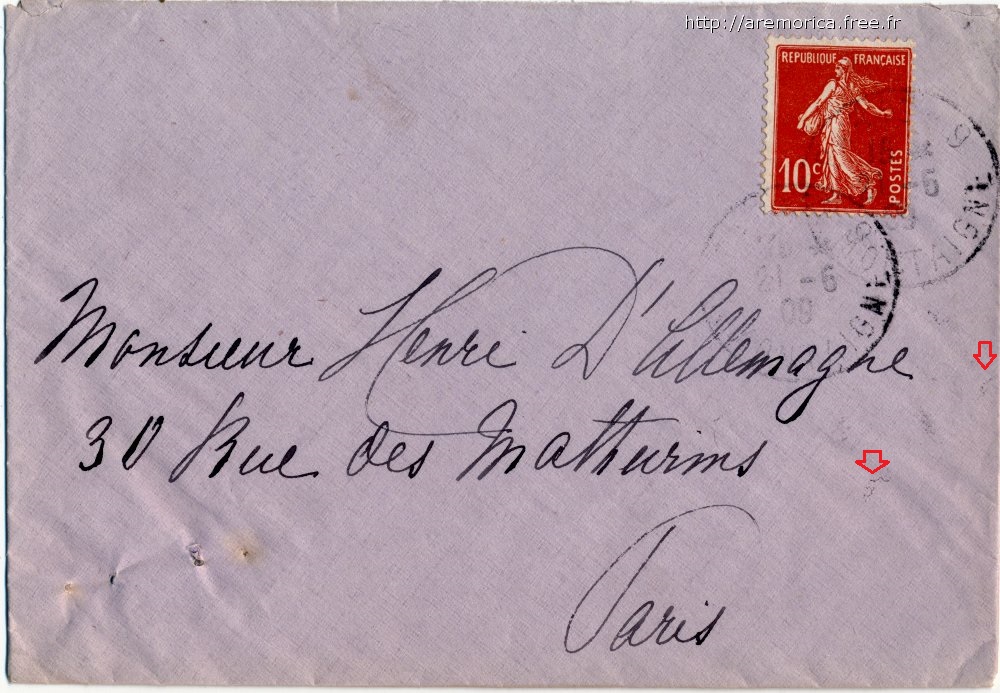 http://aremorica.free.fr
REPUBLIQUE FRANÇAISE
10c
POSTES
21 -6
09
TAIGNE
-6
Monsieur Henri D'Allemagne
30 Rue des Mathurins
Paris